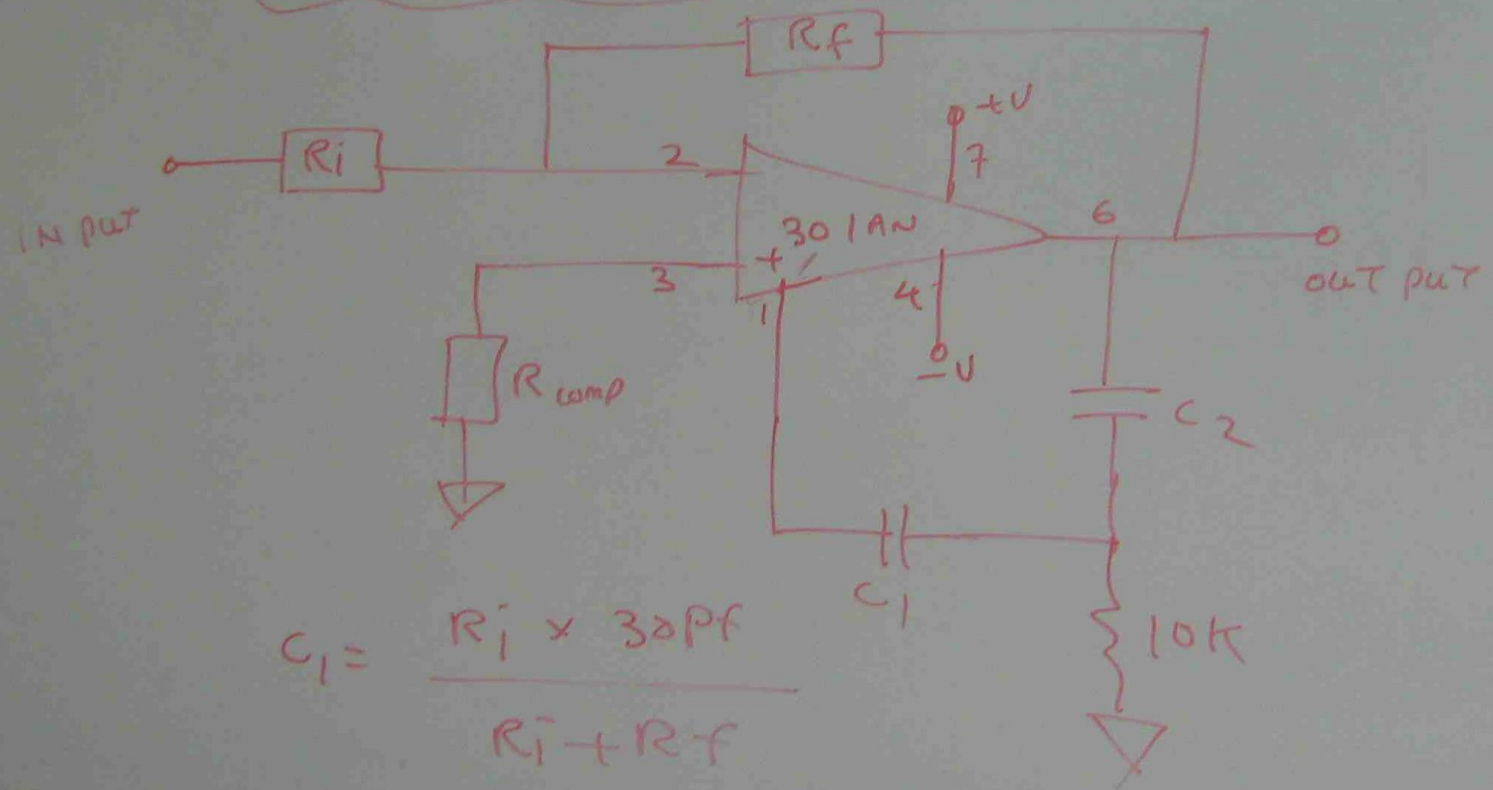 Rf
+V
7
Ri
2
INPUT
301AN
6
+
3
1
4
OUTPUT
-V
Rcomp
C2
C1
10K
C1 = Ri x 30Pf
Ri + Rf